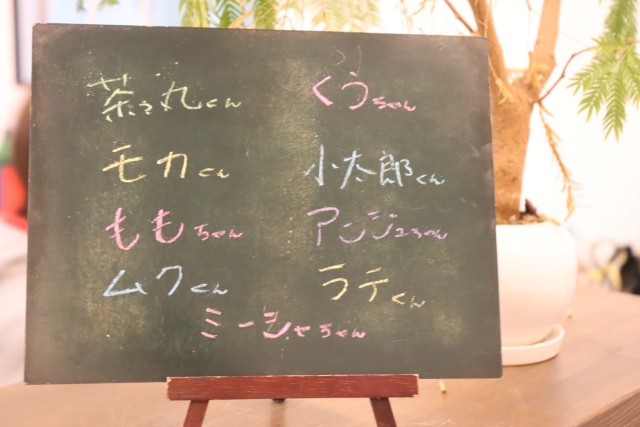 茶々丸くん くうちゃん
モカくん 小太郎くん
ももちゃん アンジュちゃん
ムクくん ラテくん
ミーシャちゃん